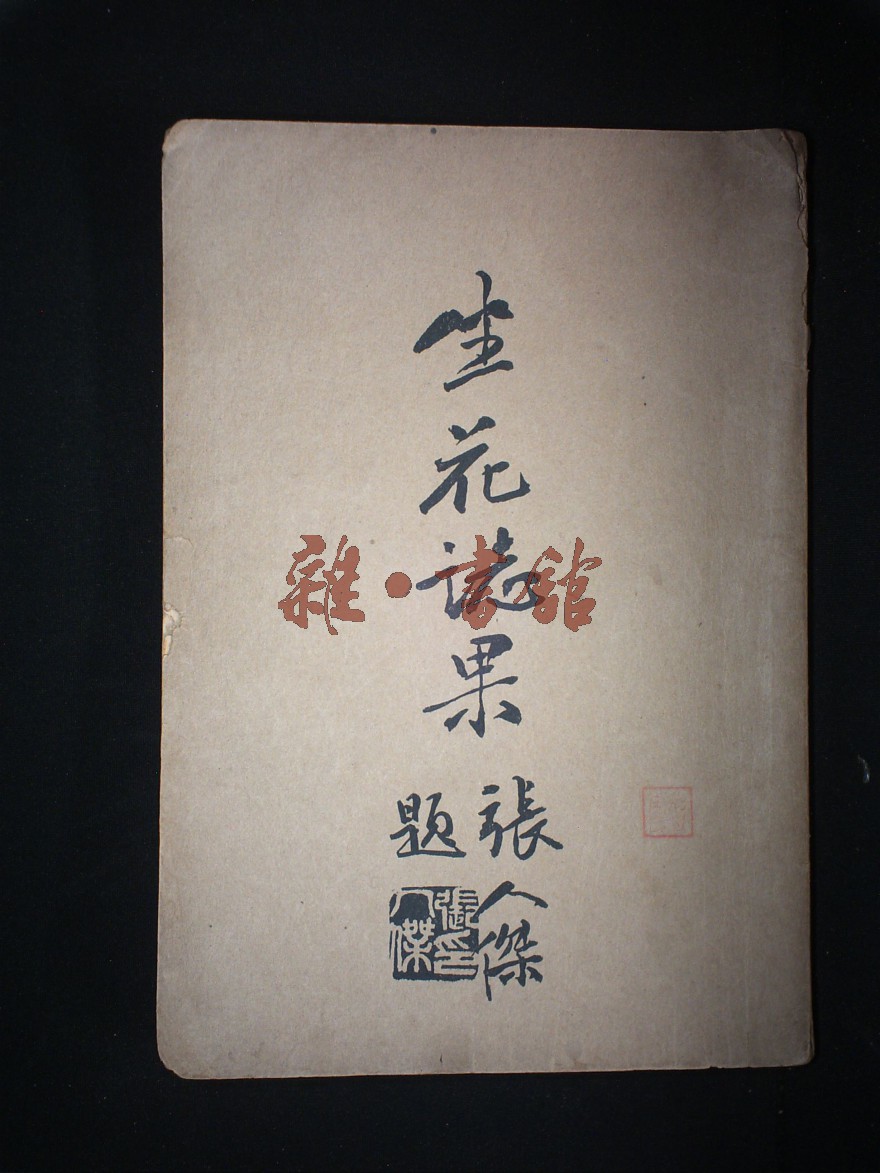 坐花誌果
張人傑
題
張印人傑
雜·書館